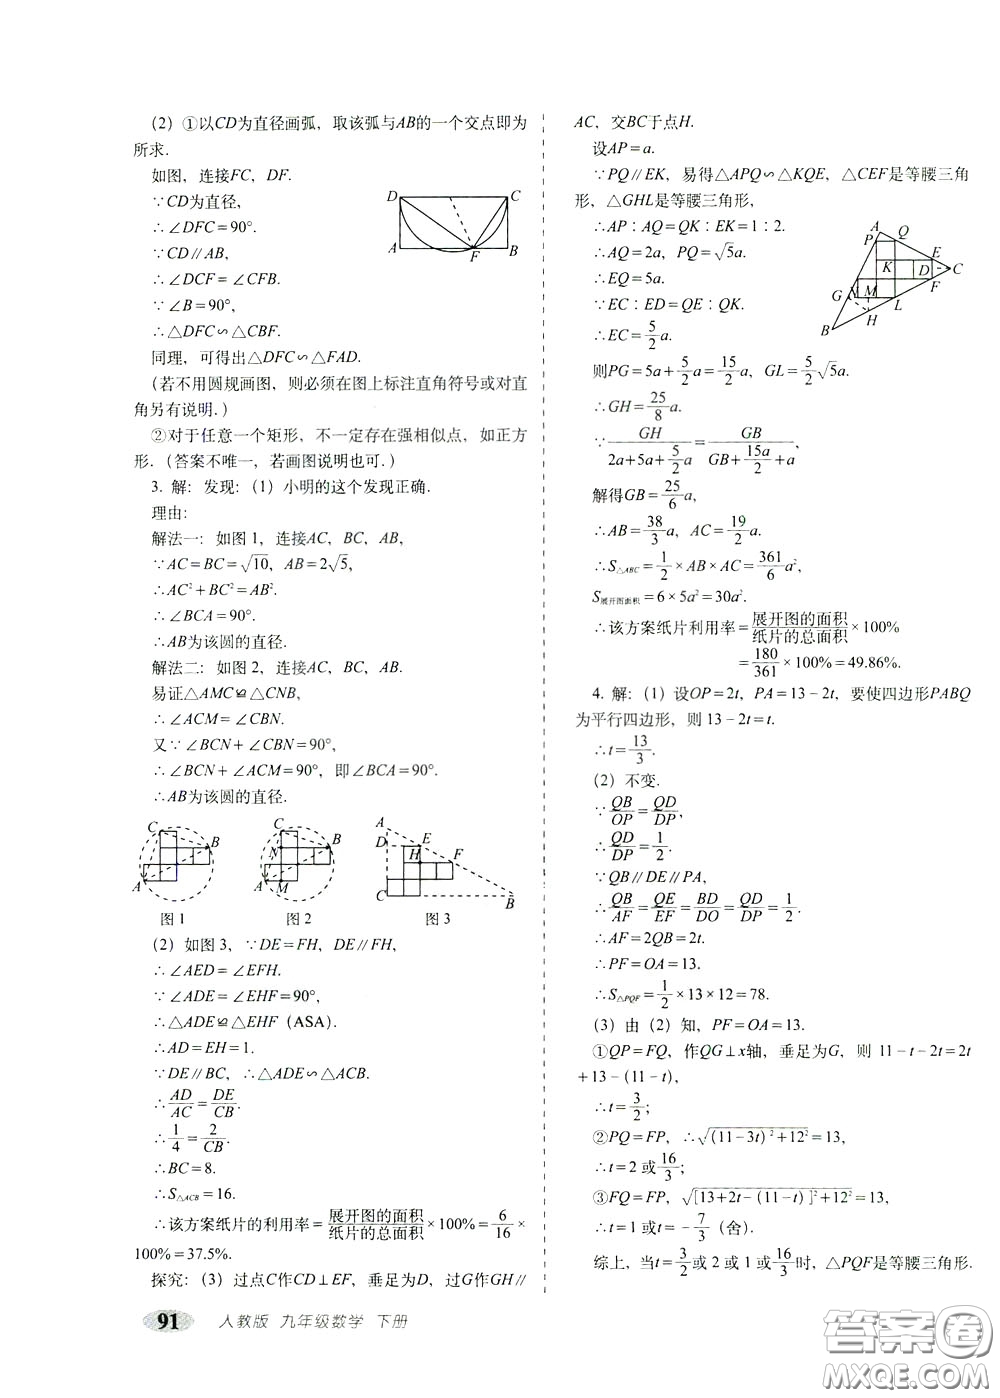 (2)①以CD为直径画弧，取该弧与AB的一个交点即为
所求.
如图，连接FC，DF.
∵CD为直径，
∴∠DFC=90°.
∵CD∥AB，
∴∠DCF=∠CFB.
∵∠B=90°，
∴△DFC∽△CBF.
同理，可得出△DFC∽△FAD.
(若不用圆规画图，则必须在图上标注直角符号或对直
角另有说明.)
②对于任意一个矩形，不一定存在强相似点，如正方
形.(答案不唯一，若画图说明也可.)
3. 解：发现：(1)小明的这个发现正确.
理由：
解法一：如图1，连接AC，BC，AB，
∵AC=BC=√10，AB=2√5，
∴AC²+BC²=AB².
∴∠BCA=90°.
∴AB为该圆的直径.
解法二：如图2，连接AC，BC，AB.
易证△AMC≌△CNB，
∴∠ACM=∠CBN.
又∵∠BCN+∠CBN=90°，
∴∠BCN+∠ACM=90°，即∠BCA=90°.
∴AB为该圆的直径.
D C
A F B
C B A
图1
C N B A M
图2
A D E H F C B
图3
(2)如图3，∵DE=FH，DE∥FH，
∴∠AED=∠EFH.
∵∠ADE=∠EHF=90°，
∴△ADE≌△EHF(ASA).
∴AD=EH=1.
∵DE∥BC，∴△ADE∽△ACB.
∴AD/AC=DE/CB.
∴1/4=2/CB.
∴BC=8.
∴S△ACB=16.
∴该方案纸片的利用率=展开图的面积/纸片的总面积×100%=6/16×
100%=37.5%.
探究：(3)过点C作CD⊥EF，垂足为D，过G作GH∥
AC，交BC于点H.
设AP=a.
∵PQ∥EK，易得△APQ∽△KQE，△CEF是等腰三角
形，△GHL是等腰三角形，
∴AP∶AQ=QK∶EK=1∶2.
∴AQ=2a，PQ=√5a.
∴EQ=5a.
∵EC∶ED=QE∶QK.
∴EC=5/2a.
则PG=5a+5/2a=15/2a，GL=5/2√5a.
∴GH=25/8a.
∵GH/(2a+5a+5/2a)=GB/(GB+15a/2+a)，
解得GB=25/6a，
∴AB=38/3a，AC=19/2a.
∴S△ABC=1/2×AB×AC=361/6a²，
S展开图面积=6×5a²=30a².
∴该方案纸片利用率=展开图的面积/纸片的总面积×100%
=180/361×100%=49.86%.
A Q P E K D C G N M F L H B
4. 解：(1)设OP=2t，PA=13-2t，要使四边形PABQ
为平行四边形，则13-2t=t.
∴t=13/3.
(2)不变.
∵QB/OP=QD/DP，
∴QD/DP=1/2.
∵QB∥DE∥PA，
∴QB/AF=QE/EF=BD/DO=QD/DP=1/2.
∴AF=2QB=2t.
∴PF=OA=13.
∴S△PQF=1/2×13×12=78.
(3)由(2)知，PF=OA=13.
①QP=FQ，作QG⊥x轴，垂足为G，则11-t-2t=2t
+13-(11-t)，
∴t=3/2；
②PQ=FP，∴√((11-3t)²+12²)=13，
∴t=2或16/3；
③FQ=FP，√([13+2t-(11-t)]²+12²)=13，
∴t=1或t=-7/3(舍).
综上，当t=3/2或2或1或16/3时，△PQF是等腰三角形.
91 人教版 九年级数学 下册
答案圈
MXQE.COM